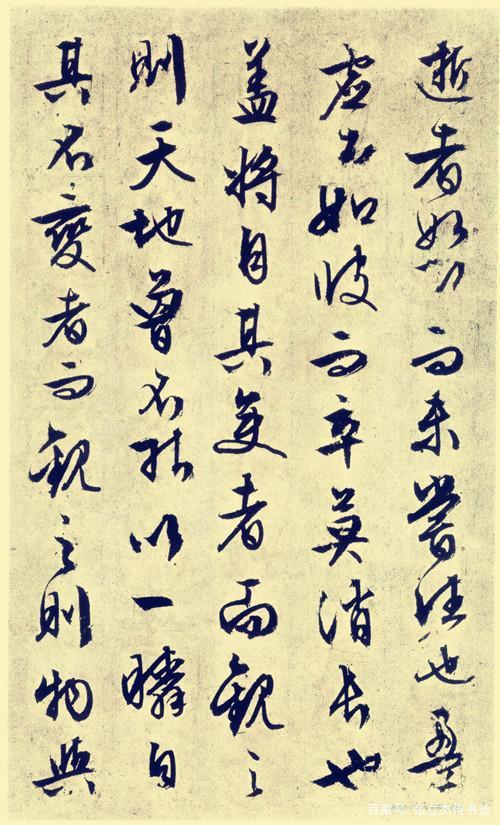 逝者如斯而未嘗往也盈
虛者如彼而卒莫消長也
蓋將自其變者而觀之
則天地曾不能以一瞬自
其不變者而觀之則物與
百家号